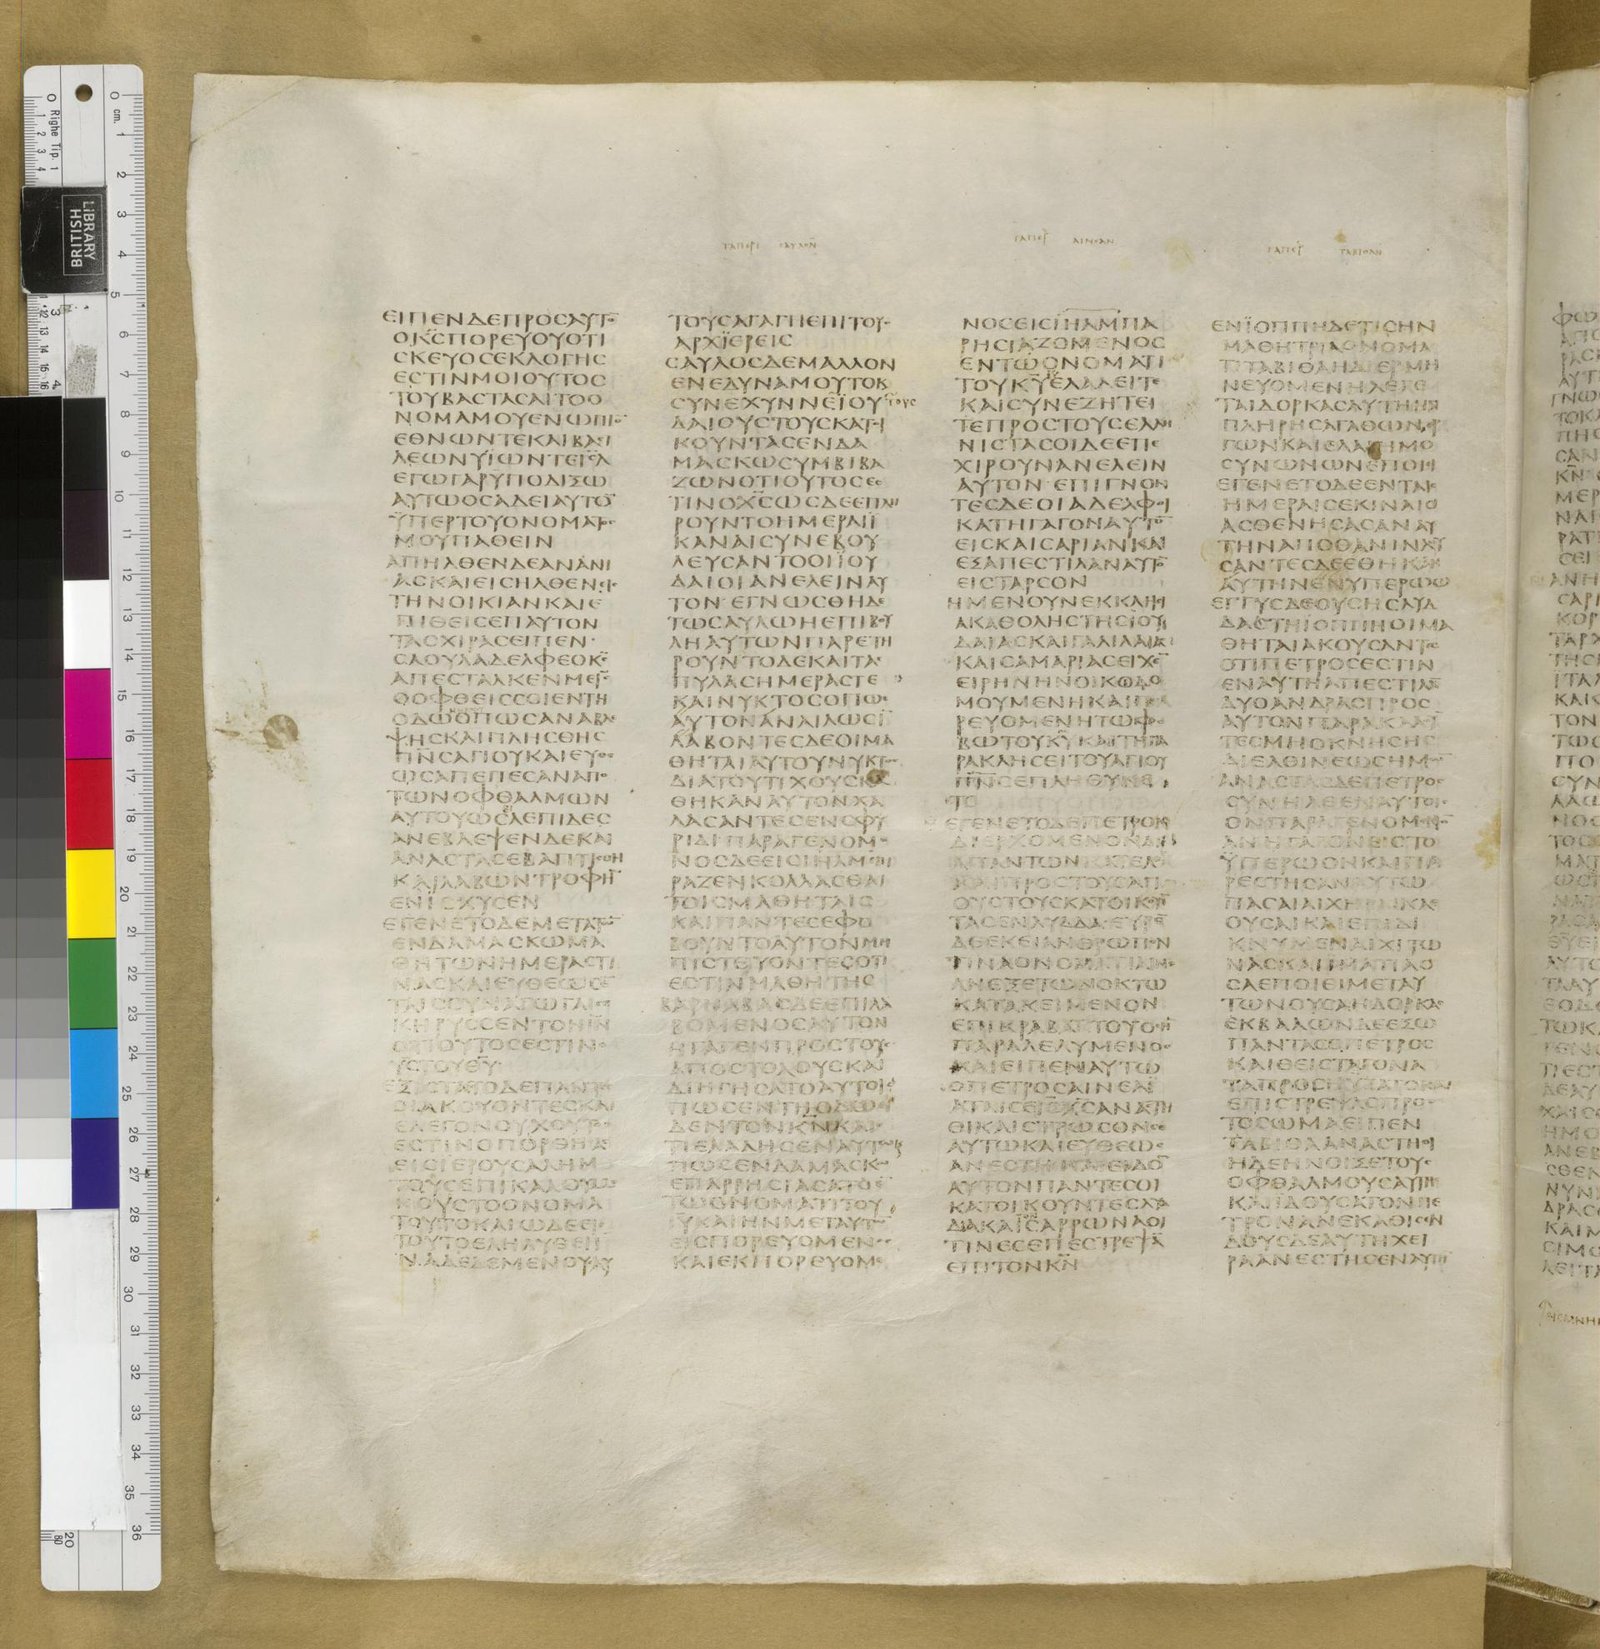 ΤΑΠΕΡΙ ΠΑΥΛΟΥ
ΤΑΠΕΡΙ ΑΙΝΕΑΝ
ΤΑΠΕΡΙ ΤΑΒΙΘΑΝ
ΕΙΠΕΝΔΕΠΡΟΣΑΥΤΟ
ΟΚΣΠΟΡΕΥΟΥΟΤΙ
ΣΚΕΥΟΣΕΚΛΟΓΗΣ
ΕΣΤΙΝΜΟΙΟΥΤΟΣ
ΤΟΥΒΑΣΤΑΣΑΙΤΟΟ
ΝΟΜΑΜΟΥΕΝΩΠΙΟ
ΕΘΝΩΝΤΕΚΑΙΒΑΣΙ
ΛΕΩΝΥΙΩΝΤΕΙΗΛ
ΕΓΩΓΑΡΥΠΟΔΙΞΩ
ΑΥΤΩΟΣΑΔΕΙΑΥΤΟ
ΥΠΕΡΤΟΥΟΝΟΜΑΤΟΣ
ΜΟΥΠΑΘΕΙΝ
ΑΠΗΛΘΕΝΔΕΑΝΑΝΙ
ΑΣΚΑΙΕΙΣΗΛΘΕΝΕΙΣ
ΤΗΝΟΙΚΙΑΝΚΑΙΕ
ΠΙΘΕΙΣΕΠΑΥΤΟΝ
ΤΑΣΧΙΡΑΣΕΙΠΕΝ
ΣΑΟΥΛΑΔΕΛΦΕΟΚΣ
ΑΠΕΣΤΑΛΚΕΝΜΕΙΣ
ΟΟΦΘΕΙΣΣΟΙΕΝΤΗ
ΟΔΩΟΠΩΣΑΝΑΒΛΕ
ΨΗΣΚΑΙΠΛΗΣΘΗΣ
ΠΝΣΑΓΙΟΥΚΑΙΕΥΘΕ
ΩΣΑΠΕΠΕΣΑΝΑΠΟ
ΤΩΝΟΦΘΑΛΜΩΝ
ΑΥΤΟΥΩΣΛΕΠΙΔΕΣ
ΑΝΕΒΛΕΨΕΝΔΕΚΑΙ
ΑΝΑΣΤΑΣΕΒΑΠΤΙΣΘΗ
ΚΑΙΛΑΒΩΝΤΡΟΦΗΝ
ΕΝΙΣΧΥΣΕΝ
ΕΓΕΝΕΤΟΔΕΜΕΤΑΤΩ
ΕΝΔΑΜΑΣΚΩΜΑ
ΘΗΤΩΝΗΜΕΡΑΣΤΙ
ΝΑΣΚΑΙΕΥΘΕΩΣΕ
ΤΑΙΣΣΥΝΑΓΩΓΑΙΣ
ΚΗΡΥΣΣΕΝΤΟΝΙΝ
ΟΤΙΟΥΤΟΣΕΣΤΙΝΟ
ΥΣΤΟΥΘΥ
ΕΞΙΣΤΑΤΟΔΕΠΑΝΤΕΣ
ΟΙΑΚΟΥΟΝΤΕΣΚΑΙ
ΕΛΕΓΟΝΟΥΧΟΥΤΟΣ
ΕΣΤΙΝΟΠΟΡΘΗΣΑΣ
ΕΙΣΙΕΡΟΥΣΑΛΗΜ
ΤΟΥΣΕΠΙΚΑΛΟΥΜΕ
ΝΟΥΣΤΟΟΝΟΜΑ
ΤΟΥΤΟΚΑΙΩΔΕΕΙΣ
ΤΟΥΤΟΕΛΗΛΥΘΕΙΙ
ΝΑΔΕΔΕΜΕΝΟΥΣΑΥ
ΤΟΥΣΑΓΑΓΗΕΠΙΤΟΥΣ
ΑΡΧΙΕΡΕΙΣ
ΣΑΥΛΟΣΔΕΜΑΛΛΟΝ
ΕΝΕΔΥΝΑΜΟΥΤΟΚ
ΣΥΝΕΧΥΝΝΕΙΟΥ ΤΟΥΣ
ΔΑΙΟΥΣΤΟΥΣΚΑΤΟΙ
ΚΟΥΝΤΑΣΕΝΔΑ
ΜΑΣΚΩΣΥΜΒΙΒΑ
ΖΩΝΟΤΙΟΥΤΟΣΕΣ
ΤΙΝΟΧΣΩΣΔΕΕΠΛΗ
ΡΟΥΝΤΟΗΜΕΡΑΙΙ
ΚΑΝΑΙΣΥΝΕΒΟΥ
ΛΕΥΣΑΝΤΟΟΙΙΟΥ
ΔΑΙΟΙΑΝΕΛΕΙΝΑΥ
ΤΟΝΕΓΝΩΣΘΗΔΕ
ΤΩΣΑΥΛΩΗΕΠΙΒΟΥ
ΛΗΑΥΤΩΝΠΑΡΕΤΗ
ΡΟΥΝΤΟΔΕΚΑΙΤΑΣ
ΠΥΛΑΣΗΜΕΡΑΣΤΕ
ΚΑΙΝΥΚΤΟΣΟΠΩΣ
ΑΥΤΟΝΑΝΑΙΛΩΣΙ
ΛΑΒΟΝΤΕΣΔΕΟΙΜΑ
ΘΗΤΑΙΑΥΤΟΥΝΥΚΤΟΣ
ΔΙΑΤΟΥΤΙΧΟΥΣΚΑ
ΘΗΚΑΝΑΥΤΟΝΧΑ
ΛΑΣΑΝΤΕΣΕΝΣΦΥ
ΡΙΔΙΠΑΡΑΓΕΝΟΜΕ
ΝΟΣΔΕΕΙΣΙΗΛΜΕΠΙ
ΡΑΖΕΝΚΟΛΛΑΣΘΑΙ
ΤΟΙΣΜΑΘΗΤΑΙΣ
ΚΑΙΠΑΝΤΕΣΕΦΟ
ΒΟΥΝΤΟΑΥΤΟΝΜΗ
ΠΙΣΤΕΥΟΝΤΕΣΟΤΙ
ΕΣΤΙΝΜΑΘΗΤΗΣ
ΒΑΡΝΑΒΑΣΔΕΕΠΙΛΑ
ΒΟΜΕΝΟΣΑΥΤΟΝ
ΗΓΑΓΕΝΠΡΟΣΤΟΥΣ
ΑΠΟΣΤΟΛΟΥΣΚΑΙ
ΔΙΗΓΗΣΑΤΟΑΥΤΟΙΣ
ΠΩΣΕΝΤΗΟΔΩΕΙ
ΔΕΝΤΟΝΚΝΚΑΙΟ
ΤΙΕΛΑΛΗΣΕΝΑΥΤΩΚΑΙ
ΠΩΣΕΝΔΑΜΑΣΚΩ
ΕΠΑΡΡΗΣΙΑΣΑΤΟΕ
ΤΩΟΝΟΜΑΤΙΤΟΥ
ΙΥΚΑΙΗΝΜΕΤΑΥΤΩ
ΕΙΣΠΟΡΕΥΟΜΕΝΟΣ
ΚΑΙΕΚΠΟΡΕΥΟΜΕ
ΝΟΣΕΙΣΙΗΛΜΠΑ
ΡΗΣΙΑΖΟΜΕΝΟΣ
ΕΝΤΩΟΝΟΜΑΤΙ
ΤΟΥΚΥΕΛΑΛΕΙΤΕ
ΚΑΙΣΥΝΕΖΗΤΕΙ
ΤΕΠΡΟΣΤΟΥΣΕΛΛΗ
ΝΙΣΤΑΣΟΙΔΕΕΠΕ
ΧΙΡΟΥΝΑΝΕΛΕΙΝ
ΑΥΤΟΝΕΠΙΓΝΟΝ
ΤΕΣΔΕΟΙΑΔΕΛΦΟΙ
ΚΑΤΗΓΑΓΟΝΑΥΤΟ
ΕΙΣΚΑΙΣΑΡΙΑΝΚΑΙ
ΕΞΑΠΕΣΤΙΛΑΝΑΥΤΟ
ΕΙΣΤΑΡΣΟΝ
ΗΜΕΝΟΥΝΕΚΚΛΗΣΙ
ΑΚΑΘΟΛΗΣΤΗΣΙΟΥ
ΔΑΙΑΣΚΑΙΓΑΛΙΛΑΙΑΣ
ΚΑΙΣΑΜΑΡΙΑΣΕΙΧΕ
ΕΙΡΗΝΗΝΟΙΚΟΔΟ
ΜΟΥΜΕΝΗΚΑΙΠΟ
ΡΕΥΟΜΕΝΗΤΩΦΟ
ΒΩΤΟΥΚΥΚΑΙΤΗΠΑ
ΡΑΚΛΗΣΕΙΤΟΥΑΓΙΟΥ
ΠΝΣΕΠΛΗΘΥΝΕ
ΤΟ
ΕΓΕΝΕΤΟΔΕΠΕΤΡΟΝ
ΔΙΕΡΧΟΜΕΝΟΝΔΙΑ
ΠΑΝΤΩΝΚΑΤΕΛΘΙ
ΚΑΙΠΡΟΣΤΟΥΣΑΓΙ
ΟΥΣΤΟΥΣΚΑΤΟΙΚΟΥ
ΤΑΣΕΝΛΥΔΔΑΕΥΡΕ
ΔΕΕΚΕΙΑΝΘΡΩΠΟΝ
ΤΙΝΑΟΝΟΜΑΤΙΑΙΝΕ
ΑΝΕΞΕΤΩΝΟΚΤΩ
ΚΑΤΑΚΕΙΜΕΝΟΝ
ΕΠΙΚΡΑΒΑΚΤΟΥΟΣΗ
ΠΑΡΑΛΕΛΥΜΕΝΟΣ
ΚΑΙΕΙΠΕΝΑΥΤΩ
ΟΠΕΤΡΟΣΑΙΝΕΑΙ
ΑΤΑΙΣΕΙΣΧΣΑΝΑΣΤΗ
ΘΙΚΑΙΣΤΡΩΣΟΝΣΕ
ΑΥΤΩΚΑΙΕΥΘΕΩΣ
ΑΝΕΣΤΗΚΑΙΕΙΔΟ
ΑΥΤΟΝΠΑΝΤΕΣΟΙ
ΚΑΤΟΙΚΟΥΝΤΕΣΛΥΔ
ΔΑΚΑΙΣΑΡΡΩΝΑΟΙ
ΤΙΝΕΣΕΠΕΣΤΡΕΨΑ
ΕΠΙΤΟΝΚΝ
ΕΝΙΟΠΠΗΔΕΤΙΣΗΝ
ΜΑΘΗΤΡΙΑΟΝΟΜΑ
ΤΙΤΑΒΙΘΑΗΔΙΕΡΜΗ
ΝΕΥΟΜΕΝΗΛΕΓΕ
ΤΑΙΔΟΡΚΑΣΑΥΤΗΗΝ
ΠΛΗΡΗΣΑΓΑΘΩΝΕΡ
ΓΩΝΚΑΙΕΛΕΗΜΟ
ΣΥΝΩΝΩΝΕΠΟΙΕΙ
ΕΓΕΝΕΤΟΔΕΕΝΤΑΙΣ
ΗΜΕΡΑΙΣΕΚΙΝΑΙΣ
ΑΣΘΕΝΗΣΑΣΑΝΑΥ
ΤΗΝΑΠΟΘΑΝΙΝΛΟΥ
ΣΑΝΤΕΣΔΕΕΘΗΚΑΝ
ΑΥΤΗΝΕΝΥΠΕΡΩΩ
ΕΓΓΥΣΔΕΟΥΣΗΣΛΥΔ
ΔΑΣΤΗΙΟΠΠΗΟΙΜΑ
ΘΗΤΑΙΑΚΟΥΣΑΝΤΕΣ
ΟΤΙΠΕΤΡΟΣΕΣΤΙΝ
ΕΝΑΥΤΗΑΠΕΣΤΙΛΑ
ΔΥΟΑΝΔΡΑΣΠΡΟΣ
ΑΥΤΟΝΠΑΡΑΚΑΛΟΥ
ΤΕΣΜΗΟΚΝΗΣΗΣ
ΔΙΕΛΘΙΝΕΩΣΗΜΩ
ΑΝΑΣΤΑΣΔΕΠΕΤΡΟΣ
ΣΥΝΗΛΘΕΝΑΥΤΟΙΣ
ΟΝΠΑΡΑΓΕΝΟΜΕΝΟ
ΑΝΗΓΑΓΟΝΕΙΣΤΟ
ΥΠΕΡΩΟΝΚΑΙΠΑ
ΡΕΣΤΗΣΑΝΑΥΤΩ
ΠΑΣΑΙΑΙΧΗΡΑΙΚΛΑΙ
ΟΥΣΑΙΚΑΙΕΠΙΔΙ
ΚΝΥΜΕΝΑΙΧΙΤΩ
ΝΑΣΚΑΙΙΜΑΤΙΑΟ
ΣΑΕΠΟΙΕΙΜΕΤΑΥ
ΤΩΝΟΥΣΑΗΔΟΡΚΑΣ
ΕΚΒΑΛΩΝΔΕΕΞΩ
ΠΑΝΤΑΣΟΠΕΤΡΟΣ
ΚΑΙΘΕΙΣΤΑΓΟΝΑ
ΤΑΠΡΟΣΗΥΞΑΤΟΚΑΙ
ΕΠΙΣΤΡΕΨΑΣΠΡΟΣ
ΤΟΣΩΜΑΕΙΠΕΝ
ΤΑΒΙΘΑΑΝΑΣΤΗΘΙ
ΗΔΕΗΝΟΙΞΕΤΟΥΣ
ΟΦΘΑΛΜΟΥΣΑΥΤΗΣ
ΚΑΙΙΔΟΥΣΑΤΟΝΠΕ
ΤΡΟΝΑΝΕΚΑΘΙΣΕΝ
ΔΟΥΣΔΕΑΥΤΗΧΕΙ
ΡΑΑΝΕΣΤΗΣΕΝΑΥΤΗ
BRITISH
LIBRARY
Righe Tip. 1
cm.